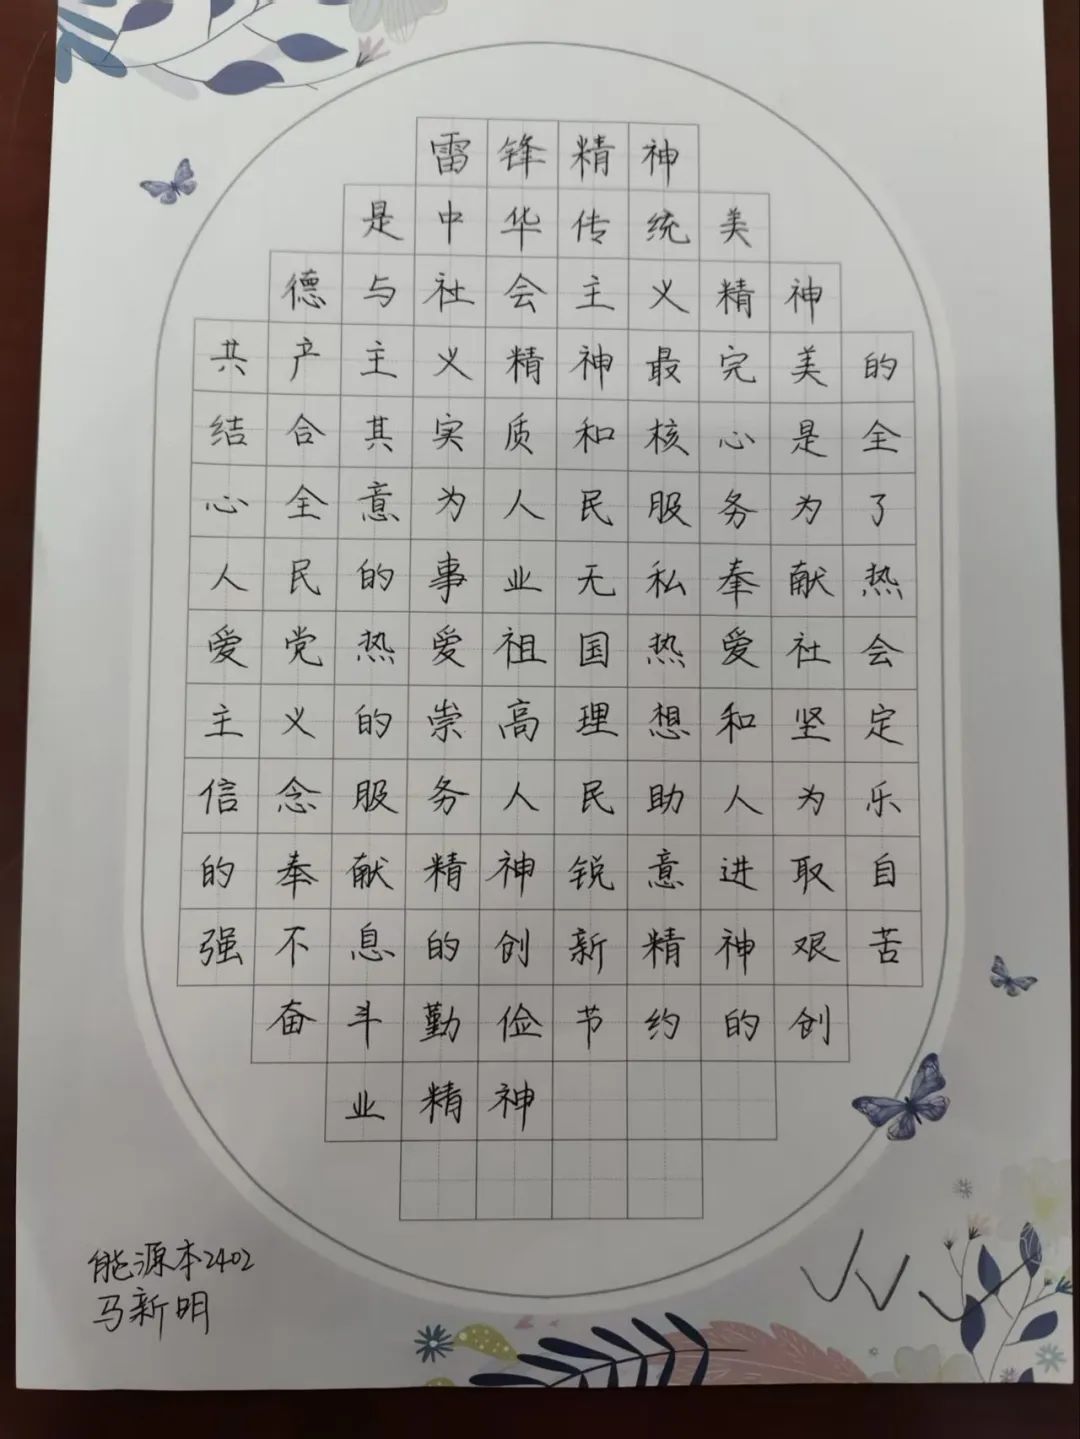 雷锋精神
是中华传统美
德与社会主义精神
共产主义精神最完美的
结合其实质和核心是全
心全意为人民服务为了
人民的事业无私奉献热
爱党热爱祖国热爱社会
主义的崇高理想和坚定
信念服务人民助人为乐
的奉献精神锐意进取自
强不息的创新精神艰苦
奋斗勤俭节约的创
业精神
能源本2402
马新明